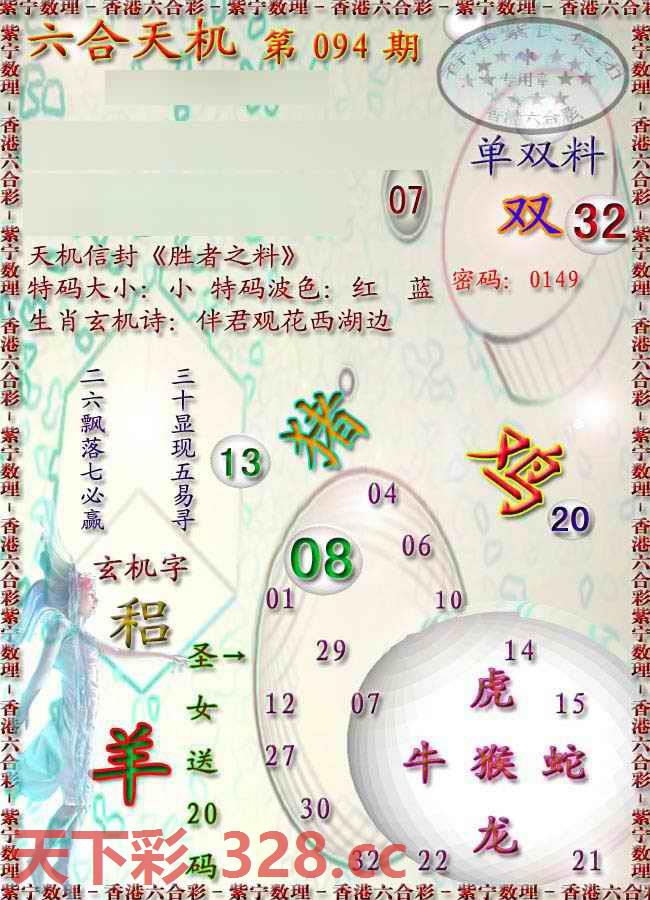 紫宁数理－香港六合彩－紫宁数理－香港六合彩－紫宁数理－香港六合彩
六合天机 第 094 期
专用章
香港六合彩
单双料
双 32
07
天机信封《胜者之料》
特码大小：小 特码波色：红 蓝
密码：0149
生肖玄机诗：伴君观花西湖边
三十显现五易寻
二六飘落七必赢
13
猪
鸡
20
玄机字
稆
羊
圣→
女
送
20
码
04
08
06
01
10
29
14
12
07
15
27
30
32
22
21
虎
牛 猴 蛇
龙
天下彩.328.cc
紫宁数理－香港六合彩－紫宁数理－香港六合彩－紫宁数理－香港六合彩